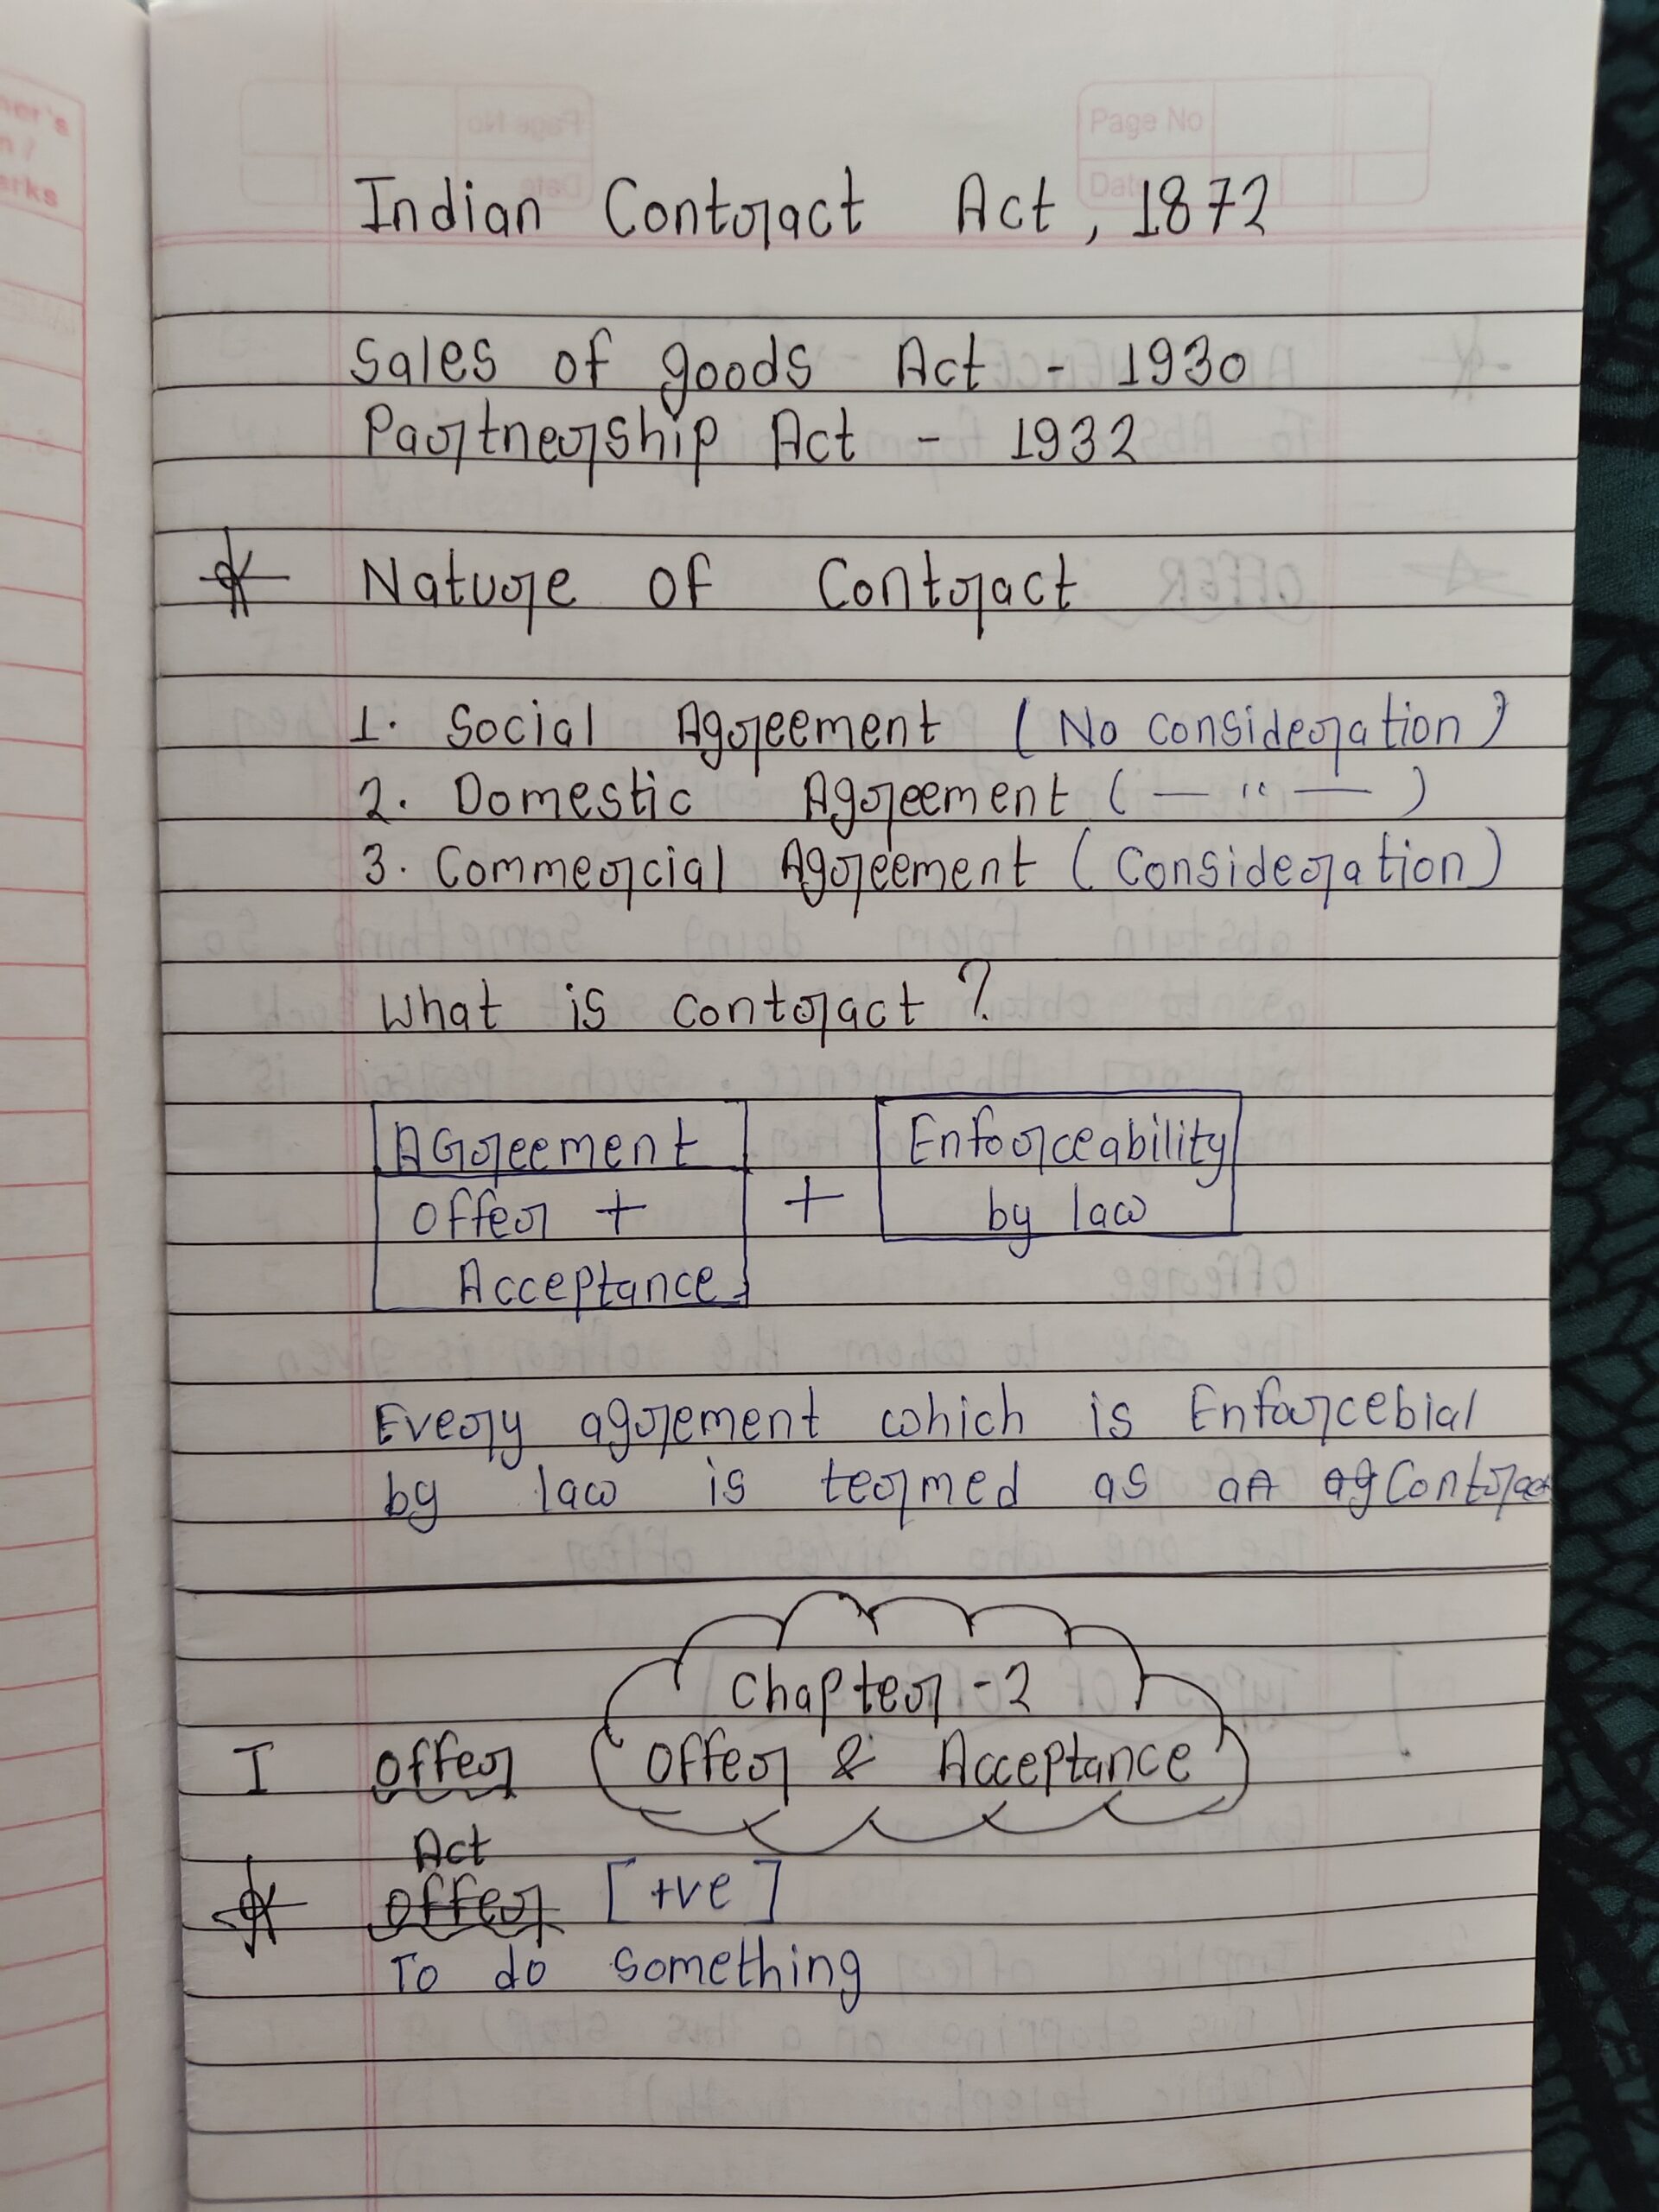 Page No
Date
Indian Contract Act, 1872
Sales of goods Act - 1930
Partnership Act - 1932
Nature of Contract
1. Social Agreement (No consideration)
2. Domestic Agreement ( — " — )
3. Commercial Agreement (Consideration)
What is contract ?
AGreement + Enforceability
offer + by law
Acceptance
Every agrement which is Enforcebial
by law is termed as an ag Contract
Chapter - 2
I offer Offer & Acceptance
Act
offer [+ve]
To do something